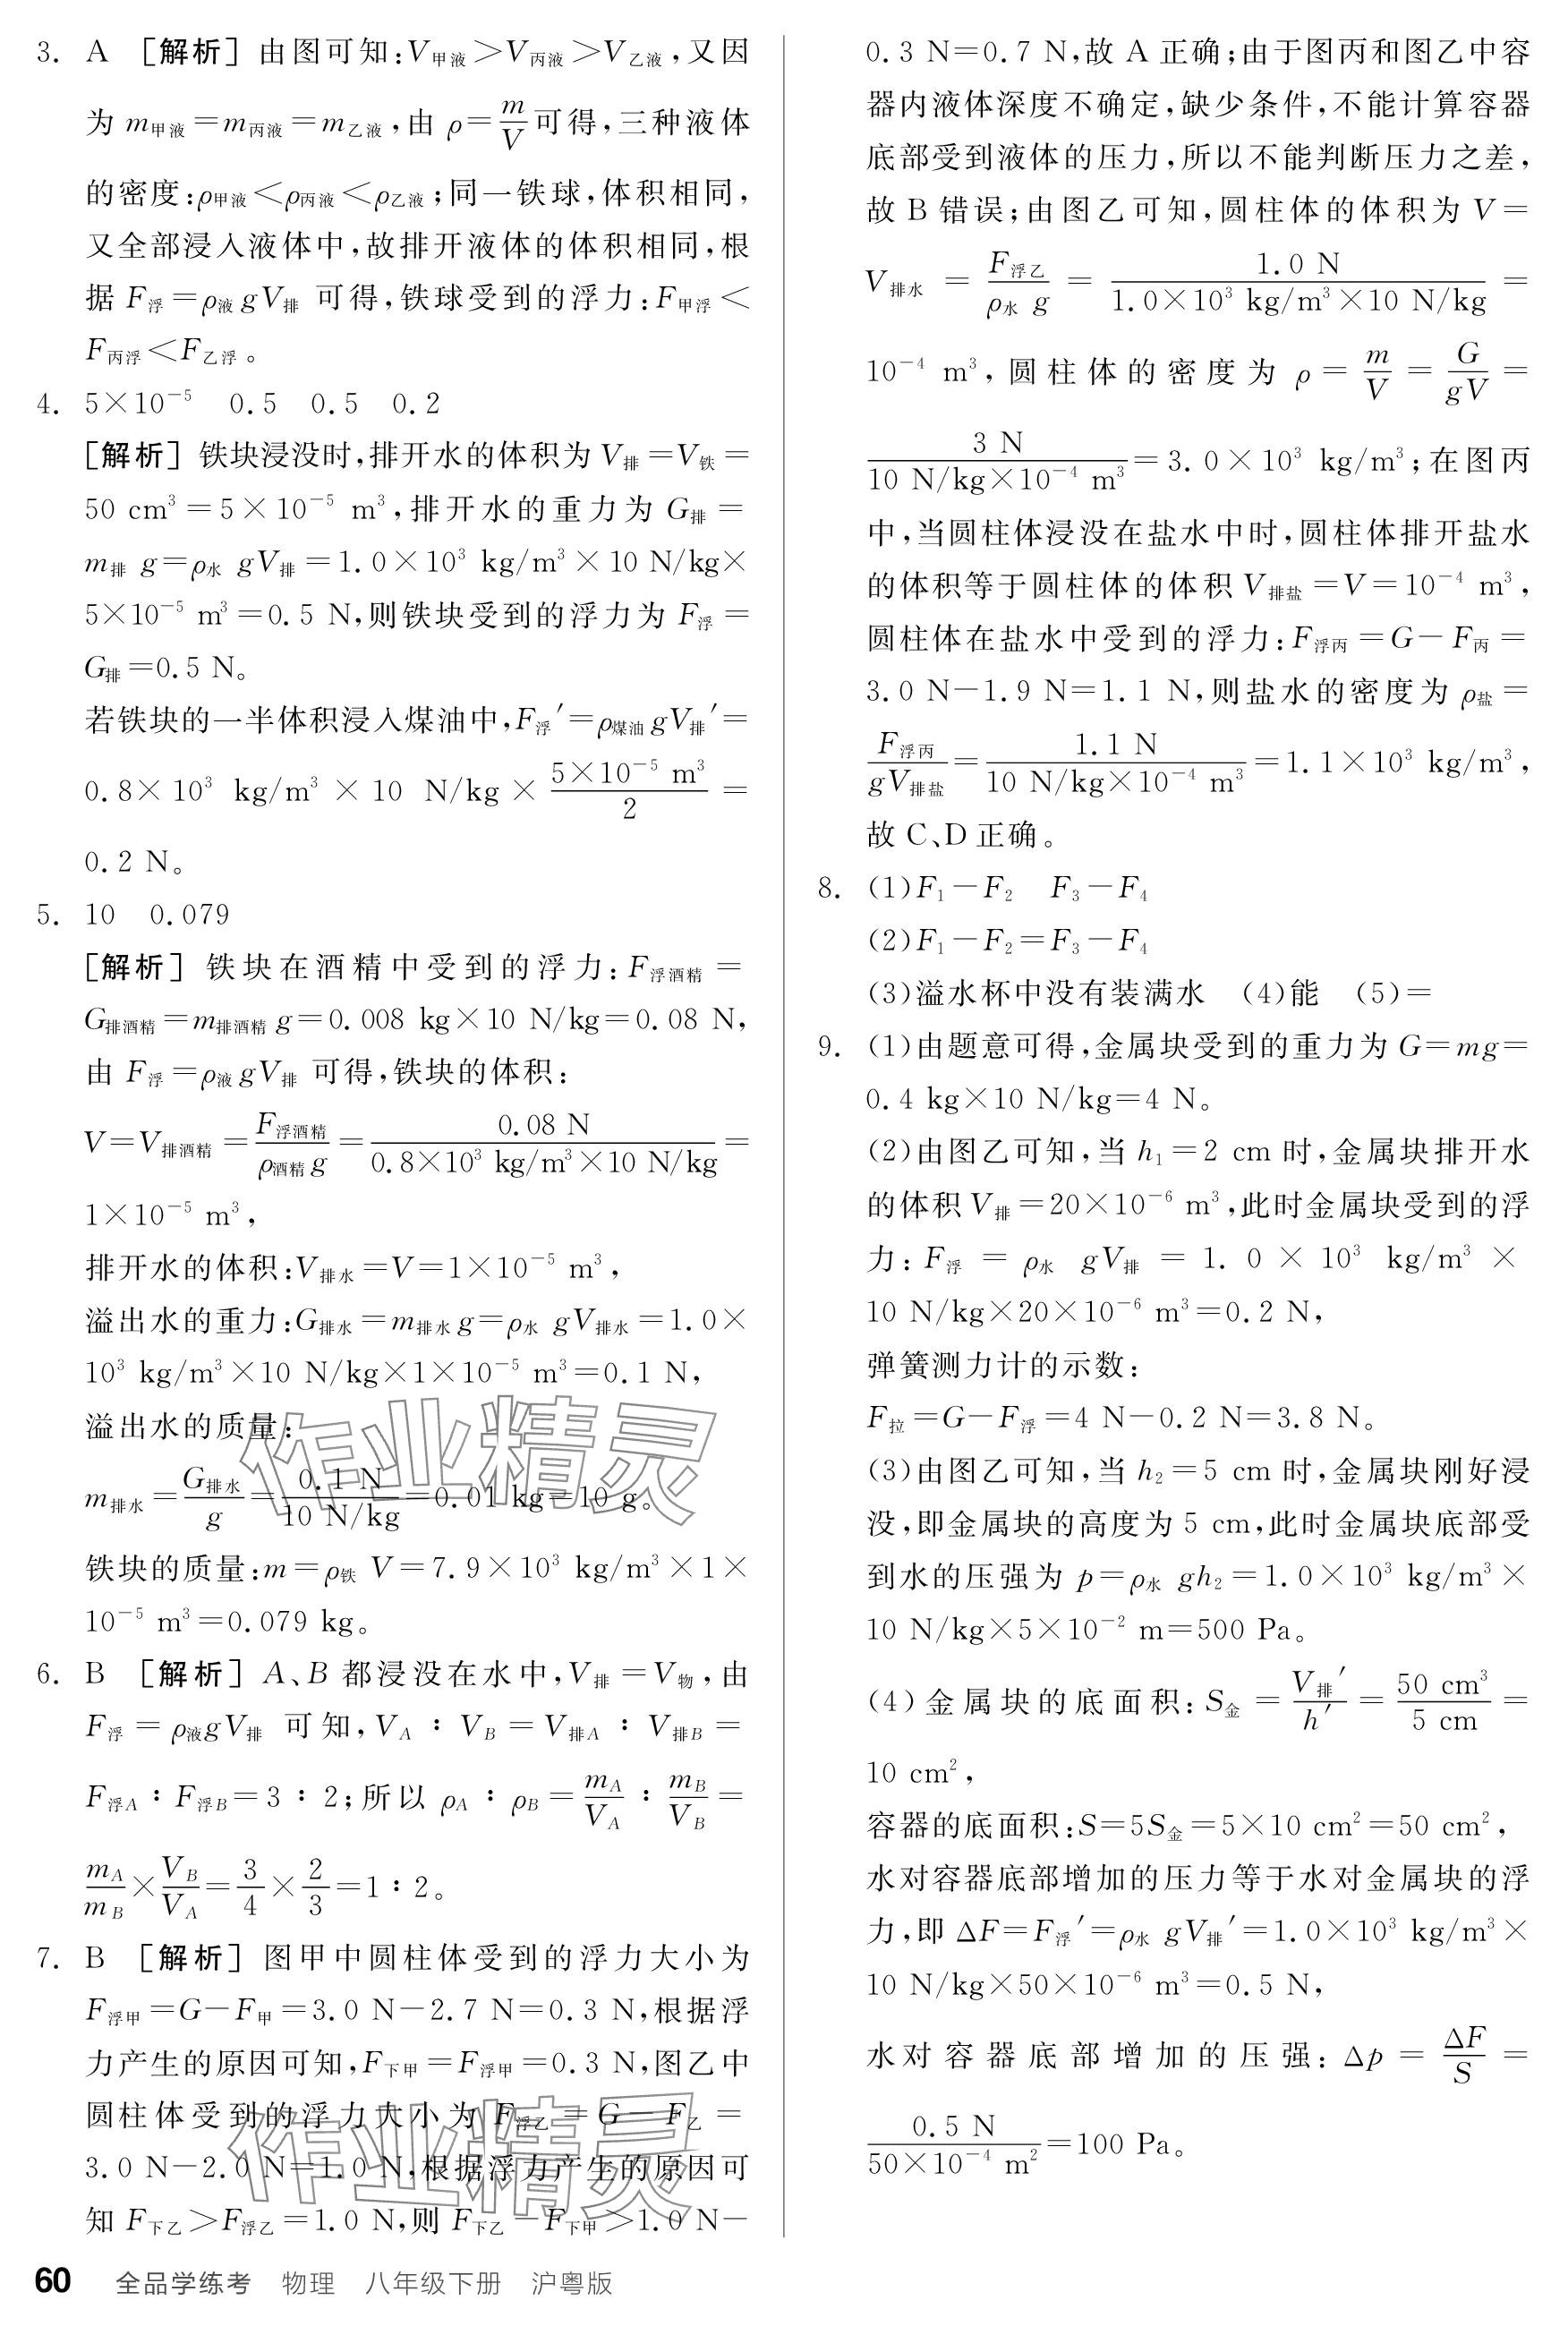 3. A ［解析］由图可知:V甲液＞V丙液＞V乙液,又因
为 m甲液＝m丙液＝m乙液,由 ρ＝m/V可得,三种液体
的密度:ρ甲液＜ρ丙液＜ρ乙液;同一铁球,体积相同,
又全部浸入液体中,故排开液体的体积相同,根
据 F浮＝ρ液gV排 可得,铁球受到的浮力:F甲浮＜
F丙浮＜F乙浮。
4. 5×10⁻⁵ 0.5 0.5 0.2
［解析］铁块浸没时,排开水的体积为 V排＝V铁＝
50 cm³＝5×10⁻⁵ m³,排开水的重力为 G排＝
m排 g＝ρ水 gV排＝1.0×10³ kg/m³×10 N/kg×
5×10⁻⁵ m³＝0.5 N,则铁块受到的浮力为 F浮＝
G排＝0.5 N。
若铁块的一半体积浸入煤油中,F浮′＝ρ煤油gV排′＝
0.8×10³ kg/m³×10 N/kg×(5×10⁻⁵ m³)/2＝
0.2 N。
5. 10 0.079
［解析］铁块在酒精中受到的浮力:F浮酒精＝
G排酒精＝m排酒精g＝0.008 kg×10 N/kg＝0.08 N,
由 F浮＝ρ液gV排 可得,铁块的体积:
V＝V排酒精＝F浮酒精/(ρ酒精g)＝0.08 N/(0.8×10³ kg/m³×10 N/kg)＝
1×10⁻⁵ m³,
排开水的体积:V排水＝V＝1×10⁻⁵ m³,
溢出水的重力:G排水＝m排水g＝ρ水 gV排水＝1.0×
10³ kg/m³×10 N/kg×1×10⁻⁵ m³＝0.1 N,
溢出水的质量:
m排水＝G排水/g＝0.1 N/(10 N/kg)＝0.01 kg＝10 g。
铁块的质量:m＝ρ铁 V＝7.9×10³ kg/m³×1×
10⁻⁵ m³＝0.079 kg。
6. B ［解析］A、B 都浸没在水中,V排＝V物,由
F浮＝ρ液gV排 可知,VA∶VB＝V排A∶V排B＝
F浮A∶F浮B＝3∶2;所以 ρA∶ρB＝mA/VA∶mB/VB＝
mA/mB×VB/VA＝3/4×2/3＝1∶2。
7. B ［解析］图甲中圆柱体受到的浮力大小为
F浮甲＝G－F甲＝3.0 N－2.7 N＝0.3 N,根据浮
力产生的原因可知,F下甲＝F浮甲＝0.3 N,图乙中
圆柱体受到的浮力大小为 F浮乙＝G－F乙＝
3.0 N－2.0 N＝1.0 N,根据浮力产生的原因可
知 F下乙＞F浮乙＝1.0 N,则 F下乙－F下甲＞1.0 N－
0.3 N＝0.7 N,故 A 正确;由于图丙和图乙中容
器内液体深度不确定,缺少条件,不能计算容器
底部受到液体的压力,所以不能判断压力之差,
故 B 错误;由图乙可知,圆柱体的体积为 V＝
V排水＝F浮乙/(ρ水 g)＝1.0 N/(1.0×10³ kg/m³×10 N/kg)＝
10⁻⁴ m³,圆柱体的密度为 ρ＝m/V＝G/(gV)＝
3 N/(10 N/kg×10⁻⁴ m³)＝3.0×10³ kg/m³;在图丙
中,当圆柱体浸没在盐水中时,圆柱体排开盐水
的体积等于圆柱体的体积 V排盐＝V＝10⁻⁴ m³,
圆柱体在盐水中受到的浮力:F浮丙＝G－F丙＝
3.0 N－1.9 N＝1.1 N,则盐水的密度为 ρ盐＝
F浮丙/(gV排盐)＝1.1 N/(10 N/kg×10⁻⁴ m³)＝1.1×10³ kg/m³,
故 C、D 正确。
8. (1)F₁－F₂ F₃－F₄
(2)F₁－F₂＝F₃－F₄
(3)溢水杯中没有装满水 (4)能 (5)＝
9. (1)由题意可得,金属块受到的重力为 G＝mg＝
0.4 kg×10 N/kg＝4 N。
(2)由图乙可知,当 h₁＝2 cm 时,金属块排开水
的体积 V排＝20×10⁻⁶ m³,此时金属块受到的浮
力:F浮＝ρ水 gV排＝1.0×10³ kg/m³×
10 N/kg×20×10⁻⁶ m³＝0.2 N,
弹簧测力计的示数:
F拉＝G－F浮＝4 N－0.2 N＝3.8 N。
(3)由图乙可知,当 h₂＝5 cm 时,金属块刚好浸
没,即金属块的高度为 5 cm,此时金属块底部受
到水的压强为 p＝ρ水 gh₂＝1.0×10³ kg/m³×
10 N/kg×5×10⁻² m＝500 Pa。
(4)金属块的底面积:S金＝V排′/h′＝50 cm³/5 cm＝
10 cm²,
容器的底面积:S＝5S金＝5×10 cm²＝50 cm²,
水对容器底部增加的压力等于水对金属块的浮
力,即 ΔF＝F浮′＝ρ水 gV排′＝1.0×10³ kg/m³×
10 N/kg×50×10⁻⁶ m³＝0.5 N,
水对容器底部增加的压强:Δp＝ΔF/S＝
0.5 N/(50×10⁻⁴ m²)＝100 Pa。
作业精灵
作业精灵
60 全品学练考 物理 八年级下册 沪粤版